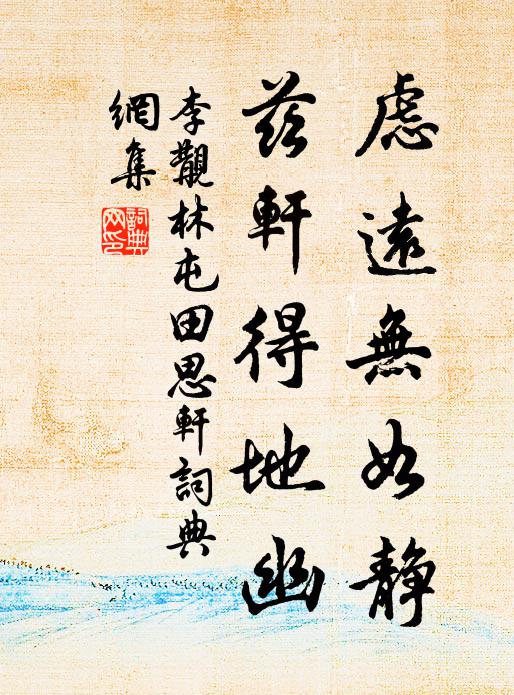 慮遠無如静
茲軒得地幽
李觀林屯田思軒詞典
網集
詞典
网印